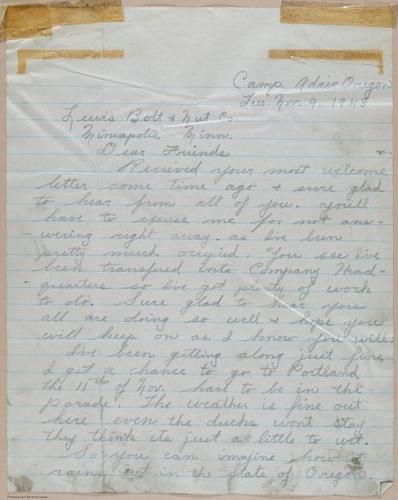 Camp Adair Oregon
Tue. Nov. 9, 1943
Lewis Bolt & Nut Co.
Miniapolis Minn.
Dear Friends
Recieved your most welcome
letter some time ago & sure glad
to hear from all of you. you'll
have to excuse me for not ans-
wering right away. as I've been
pretty much occupied. You see I've
been transfered into Company Head-
quarters so I've got plenty of work
to do. Sure glad to hear you
all are doing so well & hope you
will keep on as I know you will.
I've been getting along just fine
I get a chance to go to Portland
the 11th of Nov. have to be in the
parade. The weather is fine out
here even the ducks wont stay
they think its just a little to wet.
So you can imagine how it
rains out in the state of Oregon